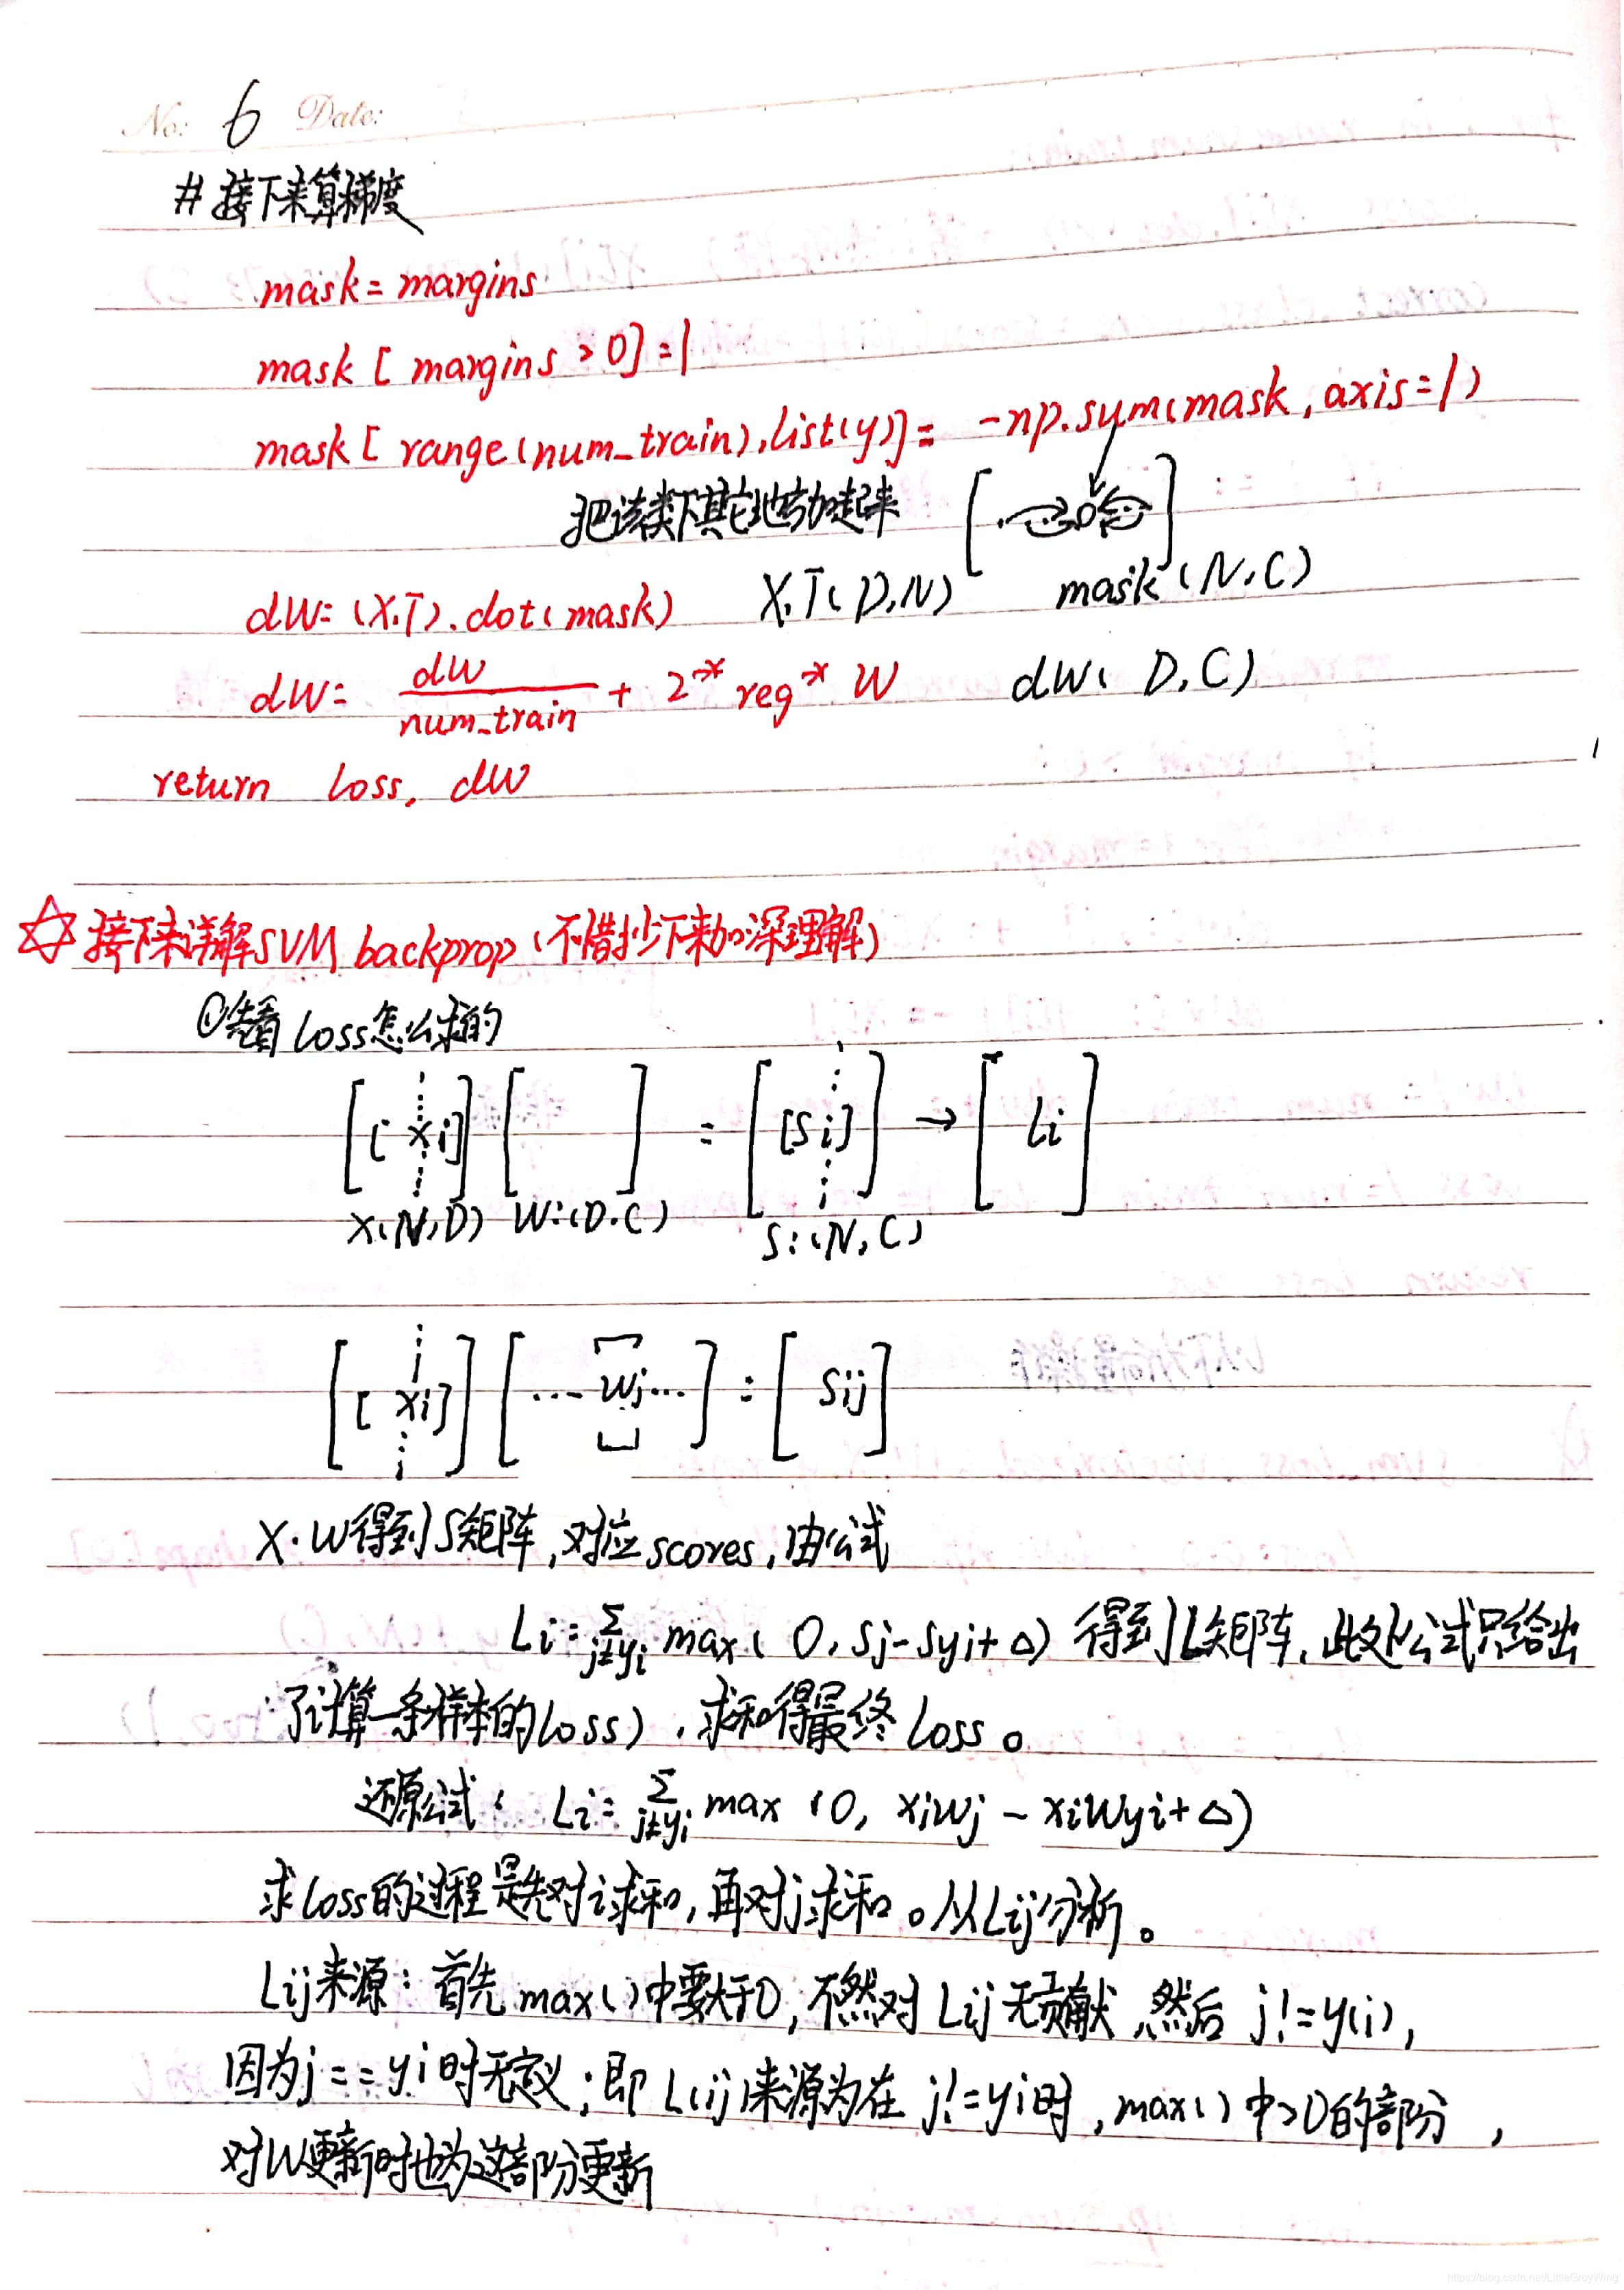 No: 6 Date:
#接下来算梯度
mask = margins
mask [ margins > 0] = 1
mask [ range(num_train), list(y)] = -np.sum(mask, axis=1)
把该类下其它地方加起来 [ 0 ]
dW = (X.T).dot(mask) X.T(D,N) mask(N,C)
dW = dW / num_train + 2 * reg * W dW( D,C)
return loss, dW
☆接下来详解SVM backprop (不惜抄下来加深理解)
①先看loss怎么求的
[ [ xi ] ] [ ] = [ [si] ] → [ Li ]
X(N,D) W:(D,C) S:(N,C)
[ [ xi] ] [ ... wj ... ] = [ sij ]
X·W得到S矩阵,对应scores,由公式
Li = Σj≠yi max( 0, sj - syi + Δ) 得到L矩阵,此处公式只给出
了计算一条样本的loss),求和得最终loss。
还原公式: Li = Σj≠yi max (0, xiwj - xiwyi + Δ)
求loss的过程是先对i求和,再对j求和。从Lij分析。
Lij来源:首先max()中要大于0,不然对Lij无贡献 然后 j!=y(i),
因为j==yi时无定义;即L(ij)来源为在j!=yi时,max()中>0的部分,
对W更新时也为这部分更新
https://blog.csdn.net/LittleGreyWing